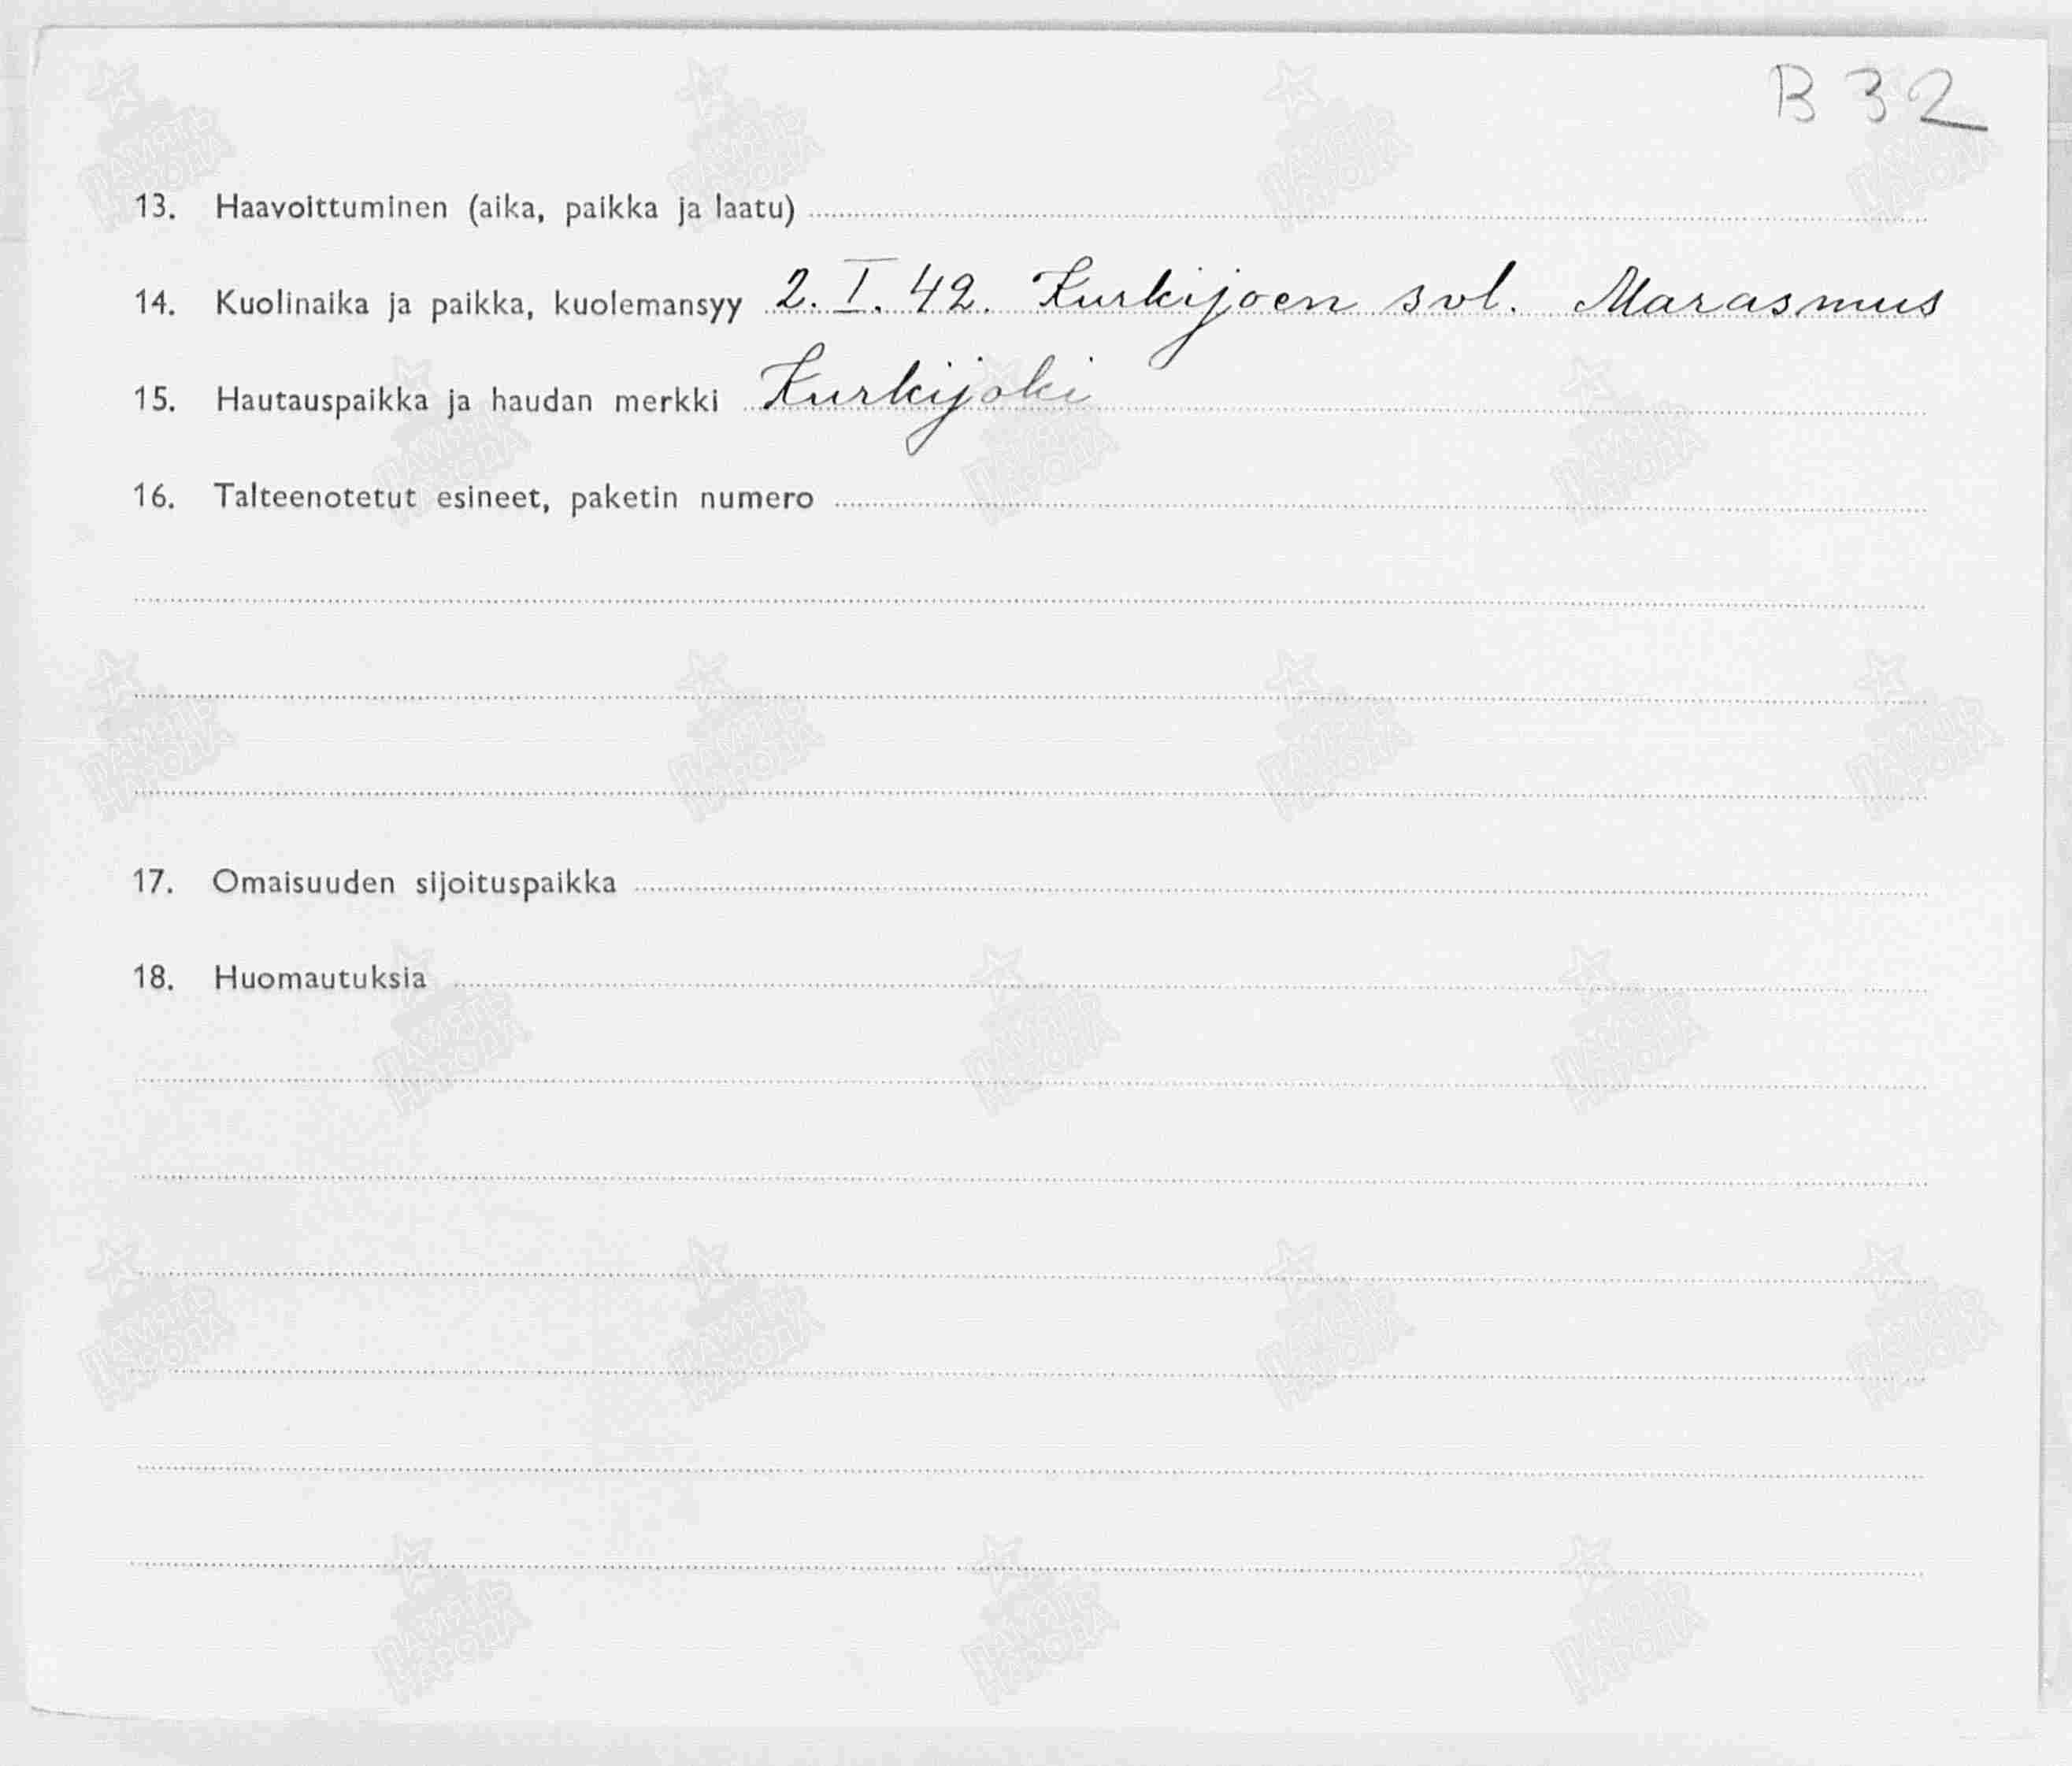 B 32
13. Haavoittuminen (aika, paikka ja laatu)
14. Kuolinaika ja paikka, kuolemansyy 2. I. 42. Kurkijoen svl. Marasmus
15. Hautauspaikka ja haudan merkki Kurkijoki
16. Talteenotetut esineet, paketin numero
17. Omaisuuden sijoituspaikka
18. Huomautuksia